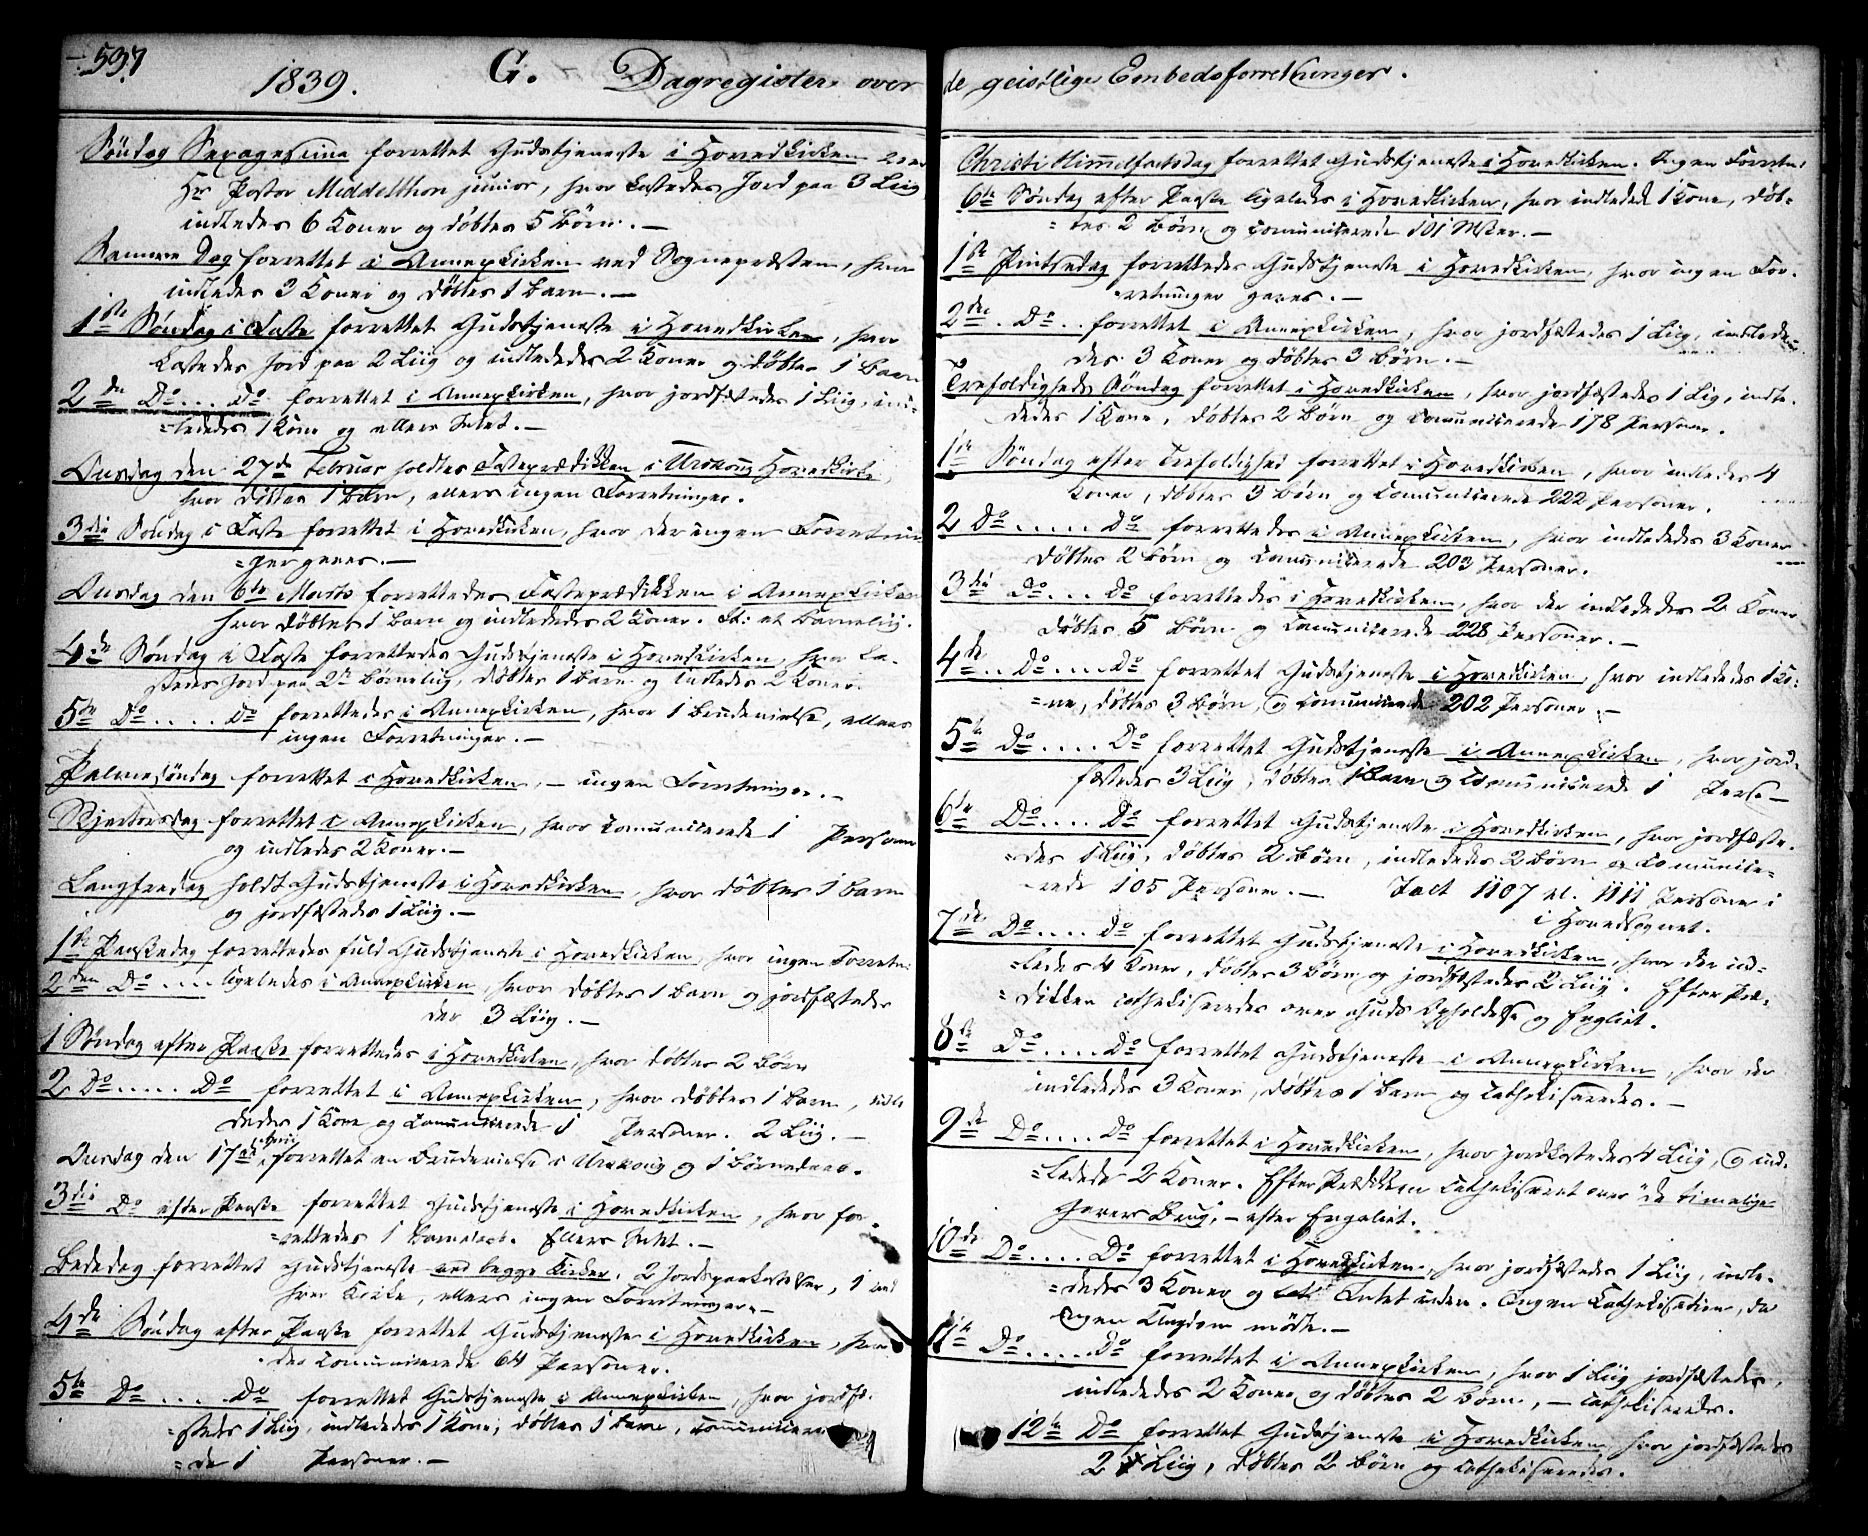 537
1839. G. Dagregister over de geistlige Embedsforretninger.
Søndag Sexagesima forrettet Gudstjeneste i Hovedkirken ved
Hr Pastor Middelthon junior, hvor kastedes Jord paa 3 Liig
indledes 6 Koner og døbtes 5 Børn. —
Samme Dag forrettet i Annexkirken ved Sognepræsten, hvor
indledes 3 Koner og døbtes 1 Barn. —
1ste Søndag i Faste forrettet Gudstjeneste i Hovedkirken, hvor
kastedes Jord paa 2 Liig og indlededes 2 Koner og døbtes 1 Barn
2den Do ... Do forrettet i Annexkirken, hvor jordfæstedes 1 Liig, ind-
=lededes 1 Kone og ellers Intet. —
Onsdag den 27de Februar holdtes Fasteprædikken i Urskoug Hovedkirke,
hvor døbtes 1 Barn, ellers ingen Forretninger.
3die Søndag i Faste forrettet i Hovedkirken, hvor der ingen Forretnin
=ger gaves. —
Onsdag den 6te Marts forrettedes Fasteprædikken i Annexkirken
hvor døbtes 1 Barn og indlededes 2 Koner. It: et Barnelig.
4de Søndag i Faste forrettedes Gudstjeneste i Hovedkirken, hvor ka-
stedes Jord paa 2de Børnelig, døbtes 1 Barn og indledes 2 Koner.
5te Do ..... Do forrettedes i Annexkirken, hvor 1 Brudevielse, ellers
ingen Forretninger. —
Palmesøndag forrettet i Hovedkirken, — ingen Forretninger. —
Skjertorsdag forrettet i Annexkirken, hvor Comunicerede 1 Person
og indledes 2 Koner. —
Langfredag holdt Gudstjeneste i Hovedkirken, hvor døbtes 1 Barn
og jordfæstedes 1 Liig. —
1ste Paaskedag forrettedes fuld Gudstjeneste i Hovedkirken, hvor ingen Forretn:
2den Do .... ligeledes i Annexkirken, hvor døbtes 1 Barn og jordfæstedes
der 3 Liig. —
1 Søndag efter Paaske forrettedes i Hovedkirken, hvor døbtes 2 Børn
2 Do ..... Do forrettet i Annexkirken, hvor døbtes 1 Barn, indle
dedes 1 Kone og Comunicerede 1 Personer. 2 Liig. —
Onsdag den 17de April forrettet en Brudevielse i Urskoug og 1 Børnedaab.
3die Do efter Paaske forrettet Gudstjeneste i Hovedkirken, hvor for-
=rettedes 1 Barnedaab. Ellers Intet. —
Bededag forrettet Gudstjeneste ved begge Kirker. 2 Jordspaakastelser, 1 ved
hver Kirke, ellers ingen Forretninger. —
4de Søndag efter Paaske forrettet Gudstjeneste i Hovedkirken, hvor
der Comunicerede 64 Personer.
5te Do ..... Do forrettet Gudstjeneste i Annexkirken, hvor jordfæ-
=stedes 1 Liig, indlededes 1 Kone, døbtes 1 Barn, comunicere
=de 1 Personer. —
Christi Himmelfartsdag forrettet Gudstjeneste i Hovedkirken. Ingen Forretn:
6te Søndag efter Paaske ligeledes i Hovedkirken, hvor indledede 1 Kone, døb-
=tes 2 Børn og Comunicerede 101 Msker. —
1ste Pintsedag forrettedes Gudstjeneste i Hovedkirken, hvor ingen For-
retninger gaves. —
2den .. Do .. forrettet i Annexkirken, hvor jordfæstedes 1 Liig, indlede-
des 3 Koner og døbtes 3 Børn. —
Trefoldigheds Søndag forrettet i Hovedkirken, hvor jordfæstedes 1 Lig, indle-
dedes 1 Kone, døbtes 2 Børn og Comunicerede 178 Personer.
1ste Søndag efter Trefoldighed forrettet i Hovedkirken, hvor indledes 4
Koner, døbtes 3 Børn og Comunicerede 222 Personer.
2 Do ..... Do forrettedes i Annexkirken, hvor indlededes 3 Koner
døbtes 2 Børn og Comunicerede 203 Personer.
3die Do .... Do forrettedes i Hovedkirken, hvor der indlededes 2 Koner
døbtes 5 Børn og Comunicerede 228 Personer. —
4de .. Do .... Do forrettet Gudstjeneste i Hovedkirken, hvor indlededes 1 Ko-
=ne, døbtes 3 Børn, og Comunicerede 202 Personer. —
5te Do .... Do forrettet Gudstjeneste i Annexkirken, hvor jord-
fæstedes 3 Liig, døbtes 1 Barn og Comunicerede 1 Perso —
6te Do .... Do forrettet Gudstjeneste i Hovedkirken, hvor jordfæste-
=des 1 Liig, døbtes 2 Børn, indlededes 2 Børn og Comunice-
=rede 105 Personer. — Talt 1107 el. 1111 Personer i
i Hovedsognet.
7de Do .... Do forrettet Gudstjeneste i Hovedkirken, hvor der ind-
=ledes 4 Koner, døbtes 3 Børn og jordfæstedes 2 Liig. Efter Præ-
=dikken catheliseredes over Guds Opholdelse og Forsynet.
8de Do .... Do forrettet Gudstjeneste i Annexkirken, hvor der
indlededes 3 Koner, døbtes 1 Barn og Catheliseredes. —
9de Do .... Do forrettet i Hovedkirken, hvor jordkastedes 4 Liig, og ind-
=ledede 2 Koner. Efter Prædikken Catheliseret over "de timelige
Gavers Brug", —
10de Do .... Do forrettet i Hovedkirken, hvor jordfæstedes 1 Liig, indle-
=dedes 3 Koner og Intet uden. Ingen Cathelisation, da
ingen Ungdom mødte. —
11te Do ..... Do forrettet i Annexkirken, hvor 1 Liig jordfæstedes,
indlededes 2 Koner og døbtes 2 Børn, — catheliseredes.
12te Do forrettet Gudstjeneste i Hovedkirken, hvor jordfæstedes
2 Liig, døbtes 2 Børn og catheliseredes.